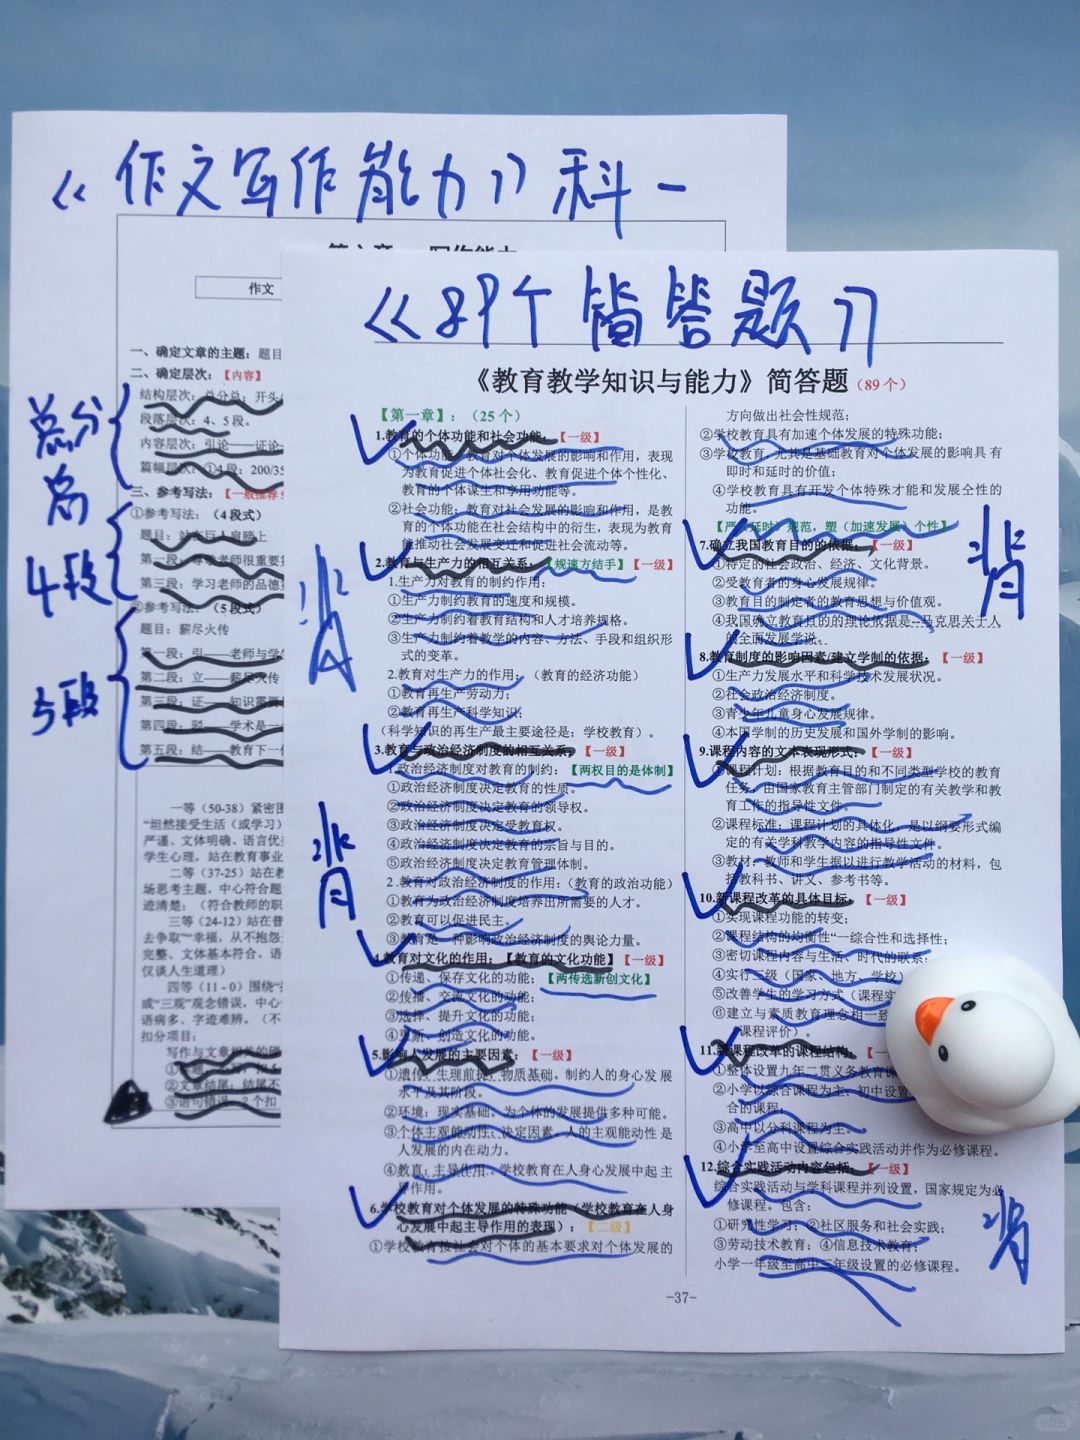 《作文写作能力》科一
作文
一、确定文章的主题：题目
二、确定层次：【内容】
结构层次：总分总：开头
段落层次：4、5段。
内容层次：引论——证论—
篇幅层次：①4段：200/35
三、参考写法：【一般推荐
①参考写法：（4段式）
题目：站在巨人肩膀上
第三段：学习老师的品德
②参考写法：（5段式）
题目：薪尽火传
第一段：引——老师与学
第二段：立——薪尽火传
第三段：证——知识需要
第四段：驳——学术是一
第五段：结——教育下一
总分
总
4段
5段
一等（50-38）紧密围
“坦然接受生活（或学习）
严谨、文体明确、语言优
学生心理，站在教育事业
二等（37-25）站在教
场思考主题，中心符合题
迹清楚：（符合教师的职
三等（24-12）站在普
去争取”“幸福，从不抱怨
完整、文体基本符合、语
仅谈人生道理）
四等（11-0）围绕“
或“三观”观念错误，中心
语病多、字迹难辨。（不
扣分项目：
写作与文章相关的
②文章结尾：结尾不
③语句错误：2个扣
《89个简答题》
《教育教学知识与能力》简答题（89个）
【第一章】：（25个）
1.教育的个体功能和社会功能：【一级】
①个体功能：教育对个体发展的影响和作用，表现
为教育促进个体社会化、教育促进个体个性化、
教育的个体谋生和享用功能等。
②社会功能：教育对社会发展的影响和作用，是教
育的个体功能在社会结构中的衍生，表现为教育
能推动社会发展变迁和促进社会流动等。
2.教育与生产力的相互关系：【规速方结手】【一级】
1.生产力对教育的制约作用：
①生产力制约教育的速度和规模。
②生产力制约着教育结构和人才培养规格。
③生产力制约着教学的内容、方法、手段和组织形
式的变革。
2.教育对生产力的作用：（教育的经济功能）
①教育再生产劳动力；
②教育再生产科学知识；
（科学知识的再生产最主要途径是：学校教育）。
3.教育与政治经济制度的相互关系：【一级】
1.政治经济制度对教育的制约：【两权目的是体制】
①政治经济制度决定教育的性质。
②政治经济制度决定教育的领导权。
③政治经济制度决定受教育权。
④政治经济制度决定教育的宗旨与目的。
⑤政治经济制度决定教育管理体制。
2.教育对政治经济制度的作用：（教育的政治功能）
①教育为政治经济制度培养出所需要的人才。
②教育可以促进民主。
③教育是一种影响政治经济制度的舆论力量。
4.教育对文化的作用：【教育的文化功能】【一级】
①传递、保存文化的功能；【两传选新创文化】
②传播、交流文化的功能；
③选择、提升文化的功能；
④更新、创造文化的功能。
5.影响人发展的主要因素：【一级】
①遗传：生理前提，物质基础。制约人的身心发展
水平及其阶段。
②环境：现实基础。为个体的发展提供多种可能。
③个体主观能动性：决定因素。人的主观能动性是
人发展的内在动力。
④教育：主导作用。学校教育在人身心发展中起主
导作用。
6.学校教育对个体发展的特殊功能（学校教育在人身
心发展中起主导作用的表现）：【二级】
①学校教育按社会对个体的基本要求对个体发展的
方向做出社会性规范；
②学校教育具有加速个体发展的特殊功能；
③学校教育，尤其是基础教育对个体发展的影响具有
即时和延时的价值；
④学校教育具有开发个体特殊才能和发展个性的
功能。
【严（延时）规范，塑（加速发展）个性】
7.确立我国教育目的的依据：【一级】
①特定的社会政治、经济、文化背景。
②受教育者的身心发展规律。
③教育目的制定者的教育思想与价值观。
④我国确立教育目的的理论依据是--马克思关于人
的全面发展学说。
8.教育制度的影响因素/建立学制的依据：【一级】
①生产力发展水平和科学技术发展状况。
②社会政治经济制度。
③青少年儿童身心发展规律。
④本国学制的历史发展和国外学制的影响。
9.课程内容的文本表现形式：【一级】
①课程计划：根据教育目的和不同类型学校的教育
任务，由国家教育主管部门制定的有关教学和教
育工作的指导性文件。
②课程标准：课程计划的具体化，是以纲要形式编
定的有关学科教学内容的指导性文件。
③教材：教师和学生据以进行教学活动的材料，包
括教科书、讲义、参考书等。
10.新课程改革的具体目标：【一级】
①实现课程功能的转变；
②课程结构的均衡性“一综合性和选择性；
③密切课程内容与生活、时代的联系；
④实行三级（国家、地方、学校）
⑤改善学生的学习方式（课程实
⑥建立与素质教育理念相一致
课程评价）。
11.新课程改革的课程结构：【一
①整体设置九年一贯义务教育课
②小学以综合课程为主；初中设置
合的课程；
③高中以分科课程为主。
④小学至高中设置综合实践活动并作为必修课程。
12.综合实践活动内容包括：【一级】
综合实践活动与学科课程并列设置，国家规定为必
修课程。包含：
①研究性学习；②社区服务和社会实践；
③劳动技术教育；④信息技术教育；
小学一年级至高中三年级设置的必修课程。
背
背
背
背
-37-